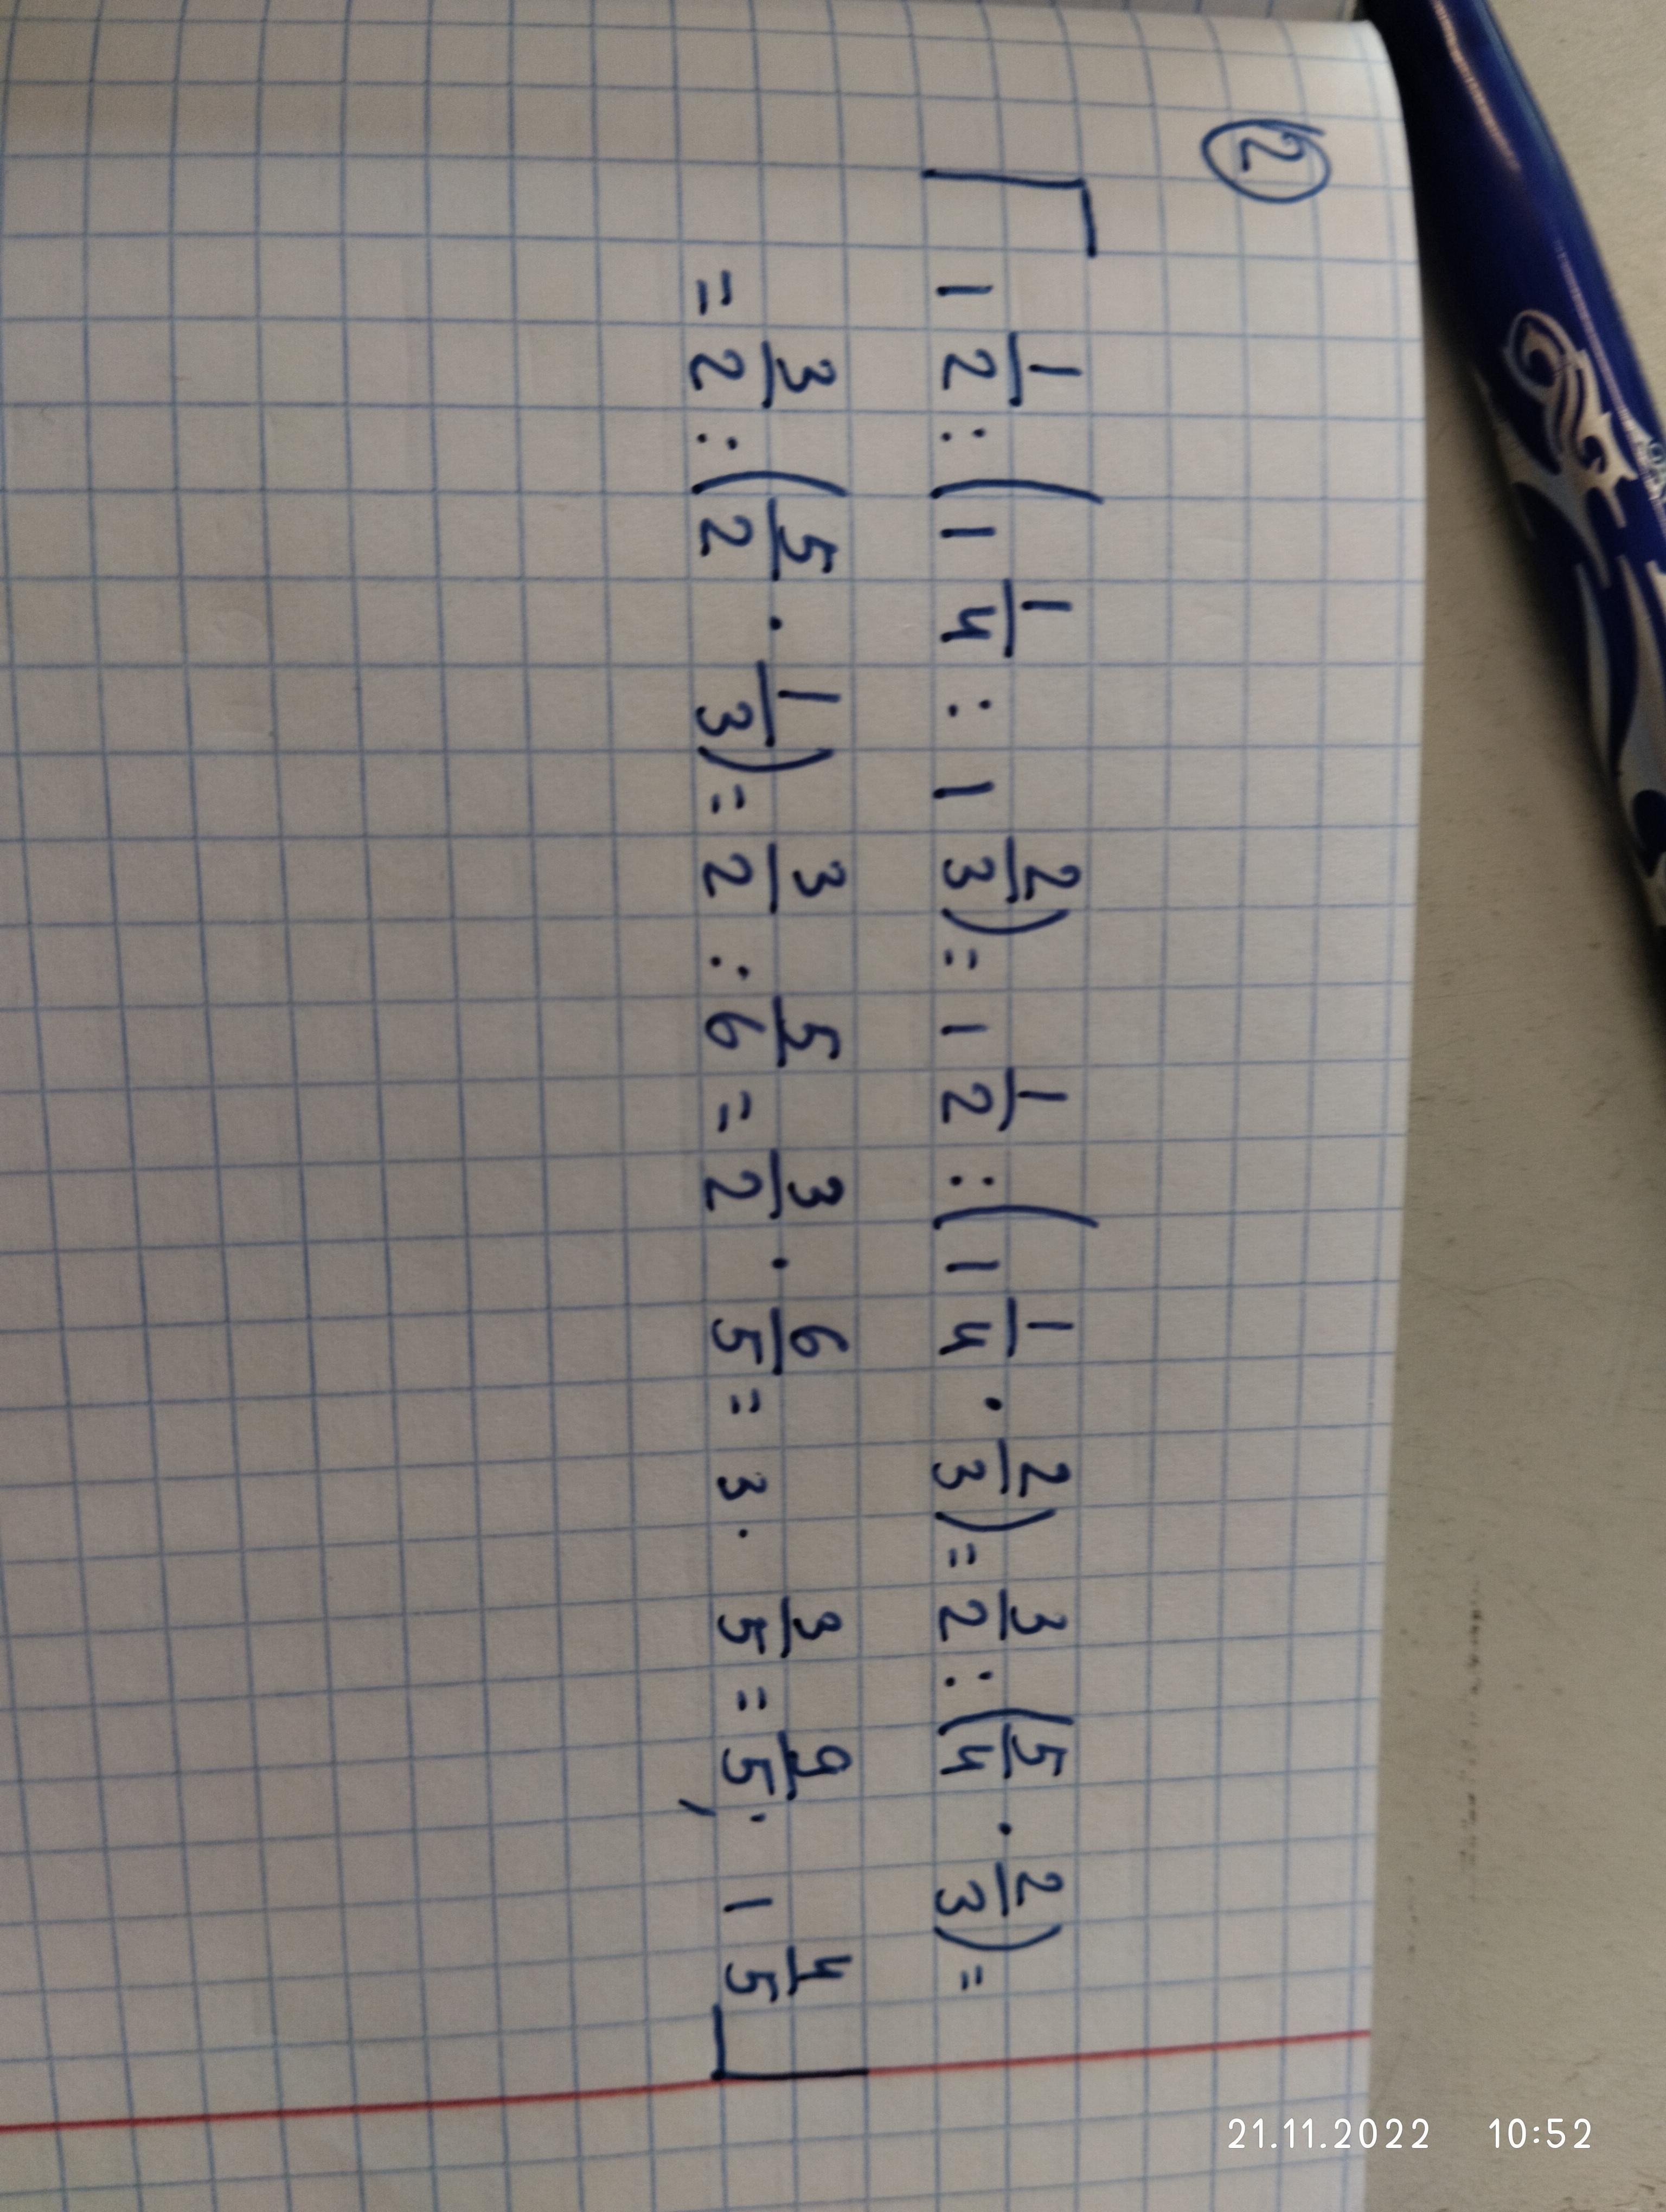 ②
1 1/2 : (1 1/4 : 1 2/3) = 1 1/2 : (1 1/4 · 2/3) = 3/2 : (5/4 · 2/3) =
= 3/2 : (5/2 · 1/3) = 3/2 : 5/6 = 3/2 · 6/5 = 3 · 3/5 = 9/5; 1 4/5
21.11.2022 10:52